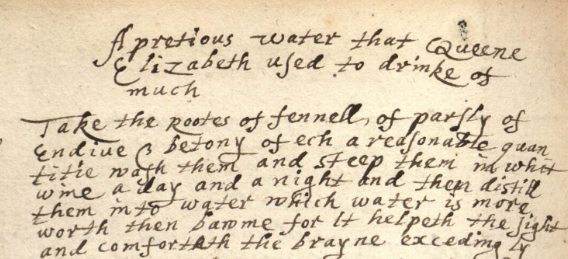 A pretious water that Queene
Elizabeth used to drinke of
much
Take the rootes of fennell, of parsly of
Endive & betony of ech a reasonable quan
titie wash them and steep them in whit
wine a day and a night and then distill
them into water which water is more
worth then bawme for It helpeth the sight
and comforteth the brayne exceding ly